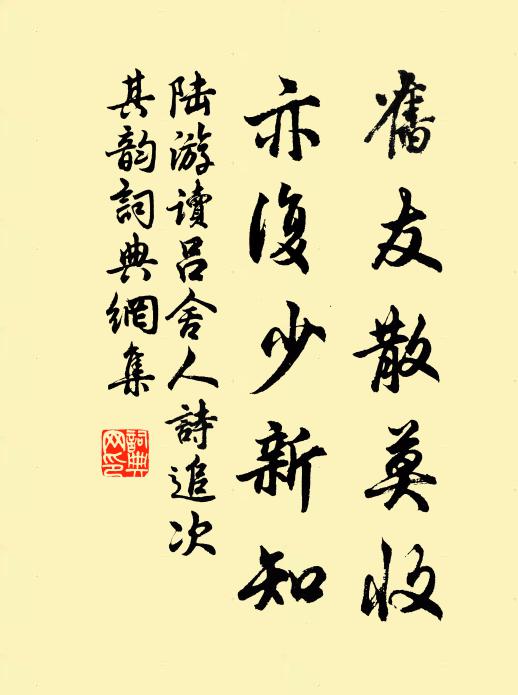 舊友散莫收
亦復少新知
陆游读吕舍人詩追次
其韵詞典網集
詞典
网印